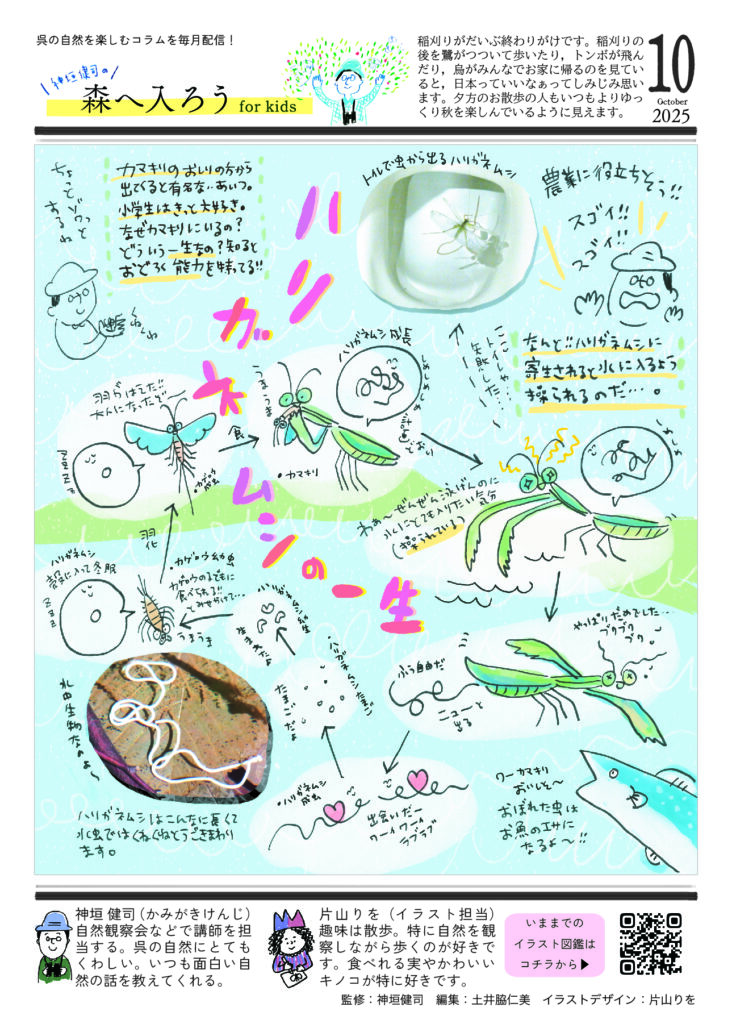 呉の自然を楽しむコラムを毎月配信！
神垣健司の
森へ入ろう for kids~
稲刈りがだいぶ終わりがけです。稲刈りの
後を鷺がつついて歩いたり，トンボが飛ん
だり，烏がみんなでお家に帰るのを見てい
ると，日本っていいなぁってしみじみ思い
ます。夕方のお散歩の人もいつもよりゆっ
くり秋を楽しんでいるように見えます。
10
October
2025
ハリガネムシの一生
カマキリのおしりの方から
出てくると有名な‥あいつ。
小学生はきっと大好き。
なぜカマキリにいるの？
どういう一生なの？知ると
おどろく能力を持ってる!!
くねくね
トイレで虫から出るハリガネムシ
農業に役立ちそう!!
スゴイ!!
スゴイ!!
なんと!!ハリガネムシに
寄生されると水に入るよう
操られるのだ…。
ハリガネムシ成長
・カマキリ
食
羽がはえた!!
大人になったぞ〜
・カゲロウ
成虫
羽化
わぁ〜ぜんぜん泳げんのに
水にとても入りたい気分
(操られている)
やっぱりだめでした…
ブクブク
ブク。
ふう自由だ
ニューと
出る
ハリガネムシ
殻に入って冬眠
zzz
カゲロウ幼虫
うまうま
・ハリガネムシたまご
たまごだよ
・ハリガネムシ
成虫
出会いだー
ワーイワーイ
ラブラブ
水中生物なのよ〜
ハリガネムシはこんなに長くて
水中ではくねくねとうごきまわり
ます。
ワーカマキリ
おいしそ〜
おぼれた虫は
お魚のエサに
なるよ〜!!
神垣 健司（かみがきけんじ）
自然観察会などで講師を担
当する。呉の自然にとても
くわしい。いつも面白い自
然の話を教えてくれる。
片山りを（イラスト担当）
趣味は散歩。特に自然を観
察しながら歩くのが好きで
す。食べれる実やかわいい
キノコが特に好きです。
いままでの
イラスト図鑑は
コチラから▶
監修：神垣健司　編集：土井脇仁美　イラストデザイン：片山りを